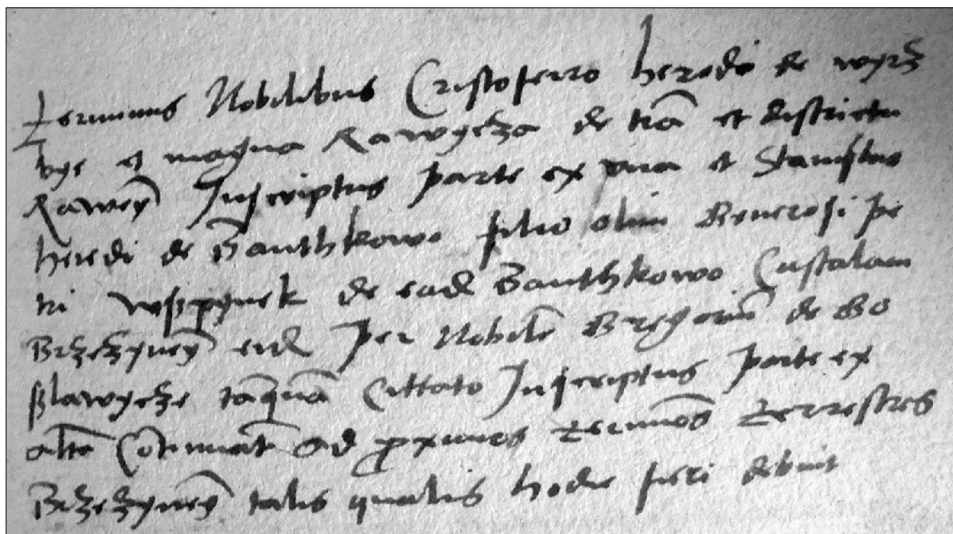 Terminus Nobilibus Cristoferro heredi de wyrz
bye et magna Rawycza de tra et districtu
Rawey Inscriptus parte ex vna et Stanislao
heredi de Banthkowo filio olim Generosi pe
tri wspynek de ead Banthkowo Castalani
Brzezyney eid per Nobile Gregoriu de Bo
glawycze tanqua Cittato Inscriptus parte ex
alta Cotinuat ad pximos terminos terrestres
Brzezyney talis qualis hodie fieri debuit